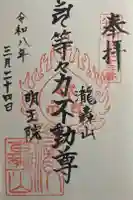 奉拝
龍轟山
等々力不動尊
明王院
令和八年
三月二十四日